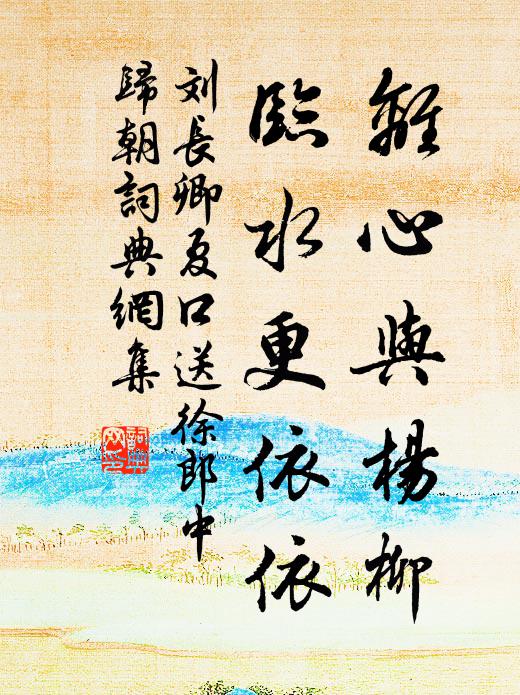 離心與楊柳
臨水更依依
刘長卿夏口送徐郎中
歸朝詞典網集